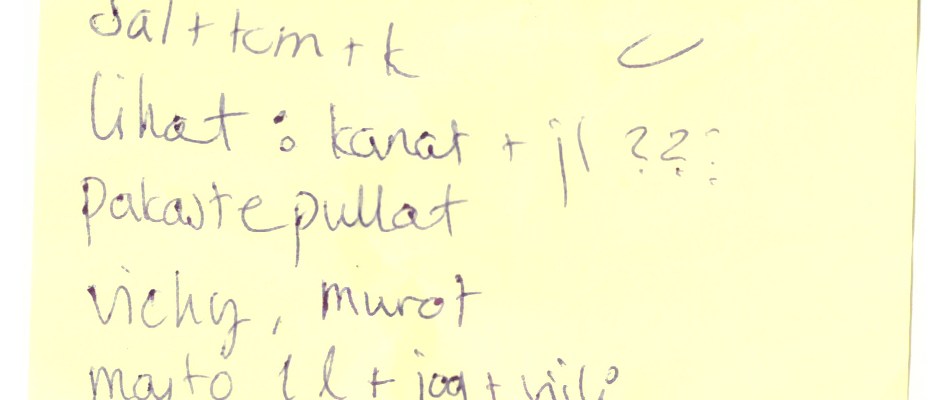 Sal + tom + k
lihat : kanat + jl ???
pakastepullat
vichy, murot
maito 1 l + jog + viili